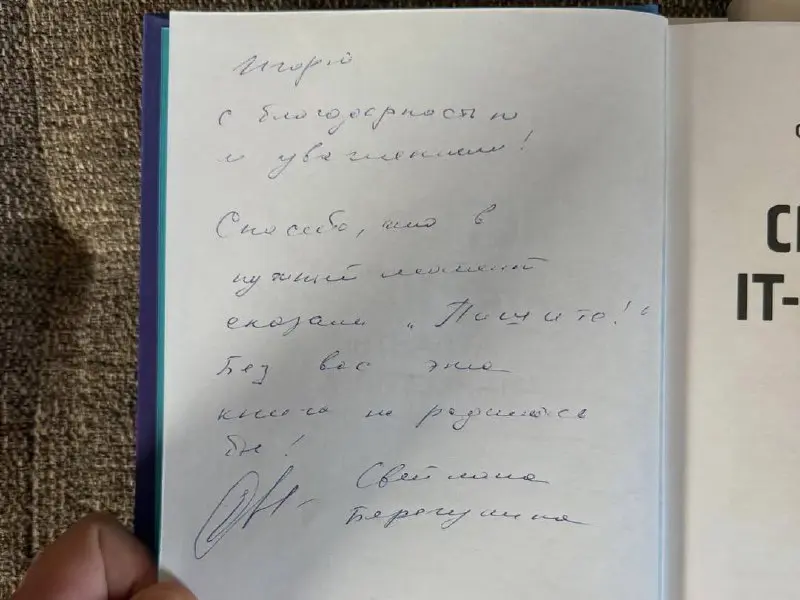 Игорю
с благодарностью
и уважением!
Спасибо, что в
нужный момент
сказали „Пишите!“
Без вас эта
книга не родилась
бы!
Светлана
Берегулина
IT-